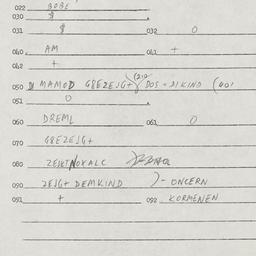 022 BOBE
030 $
031 $ 032 O
040 AM 041 +
042 +
050 MAMOD G8EZEJG+ DOS - DIKIND
051 O
060 DREML 061 O
070 G8EZEJG+
080
090 ZEJG+ DEMKIND )- ONCERN
091 + 092 KORMENEN